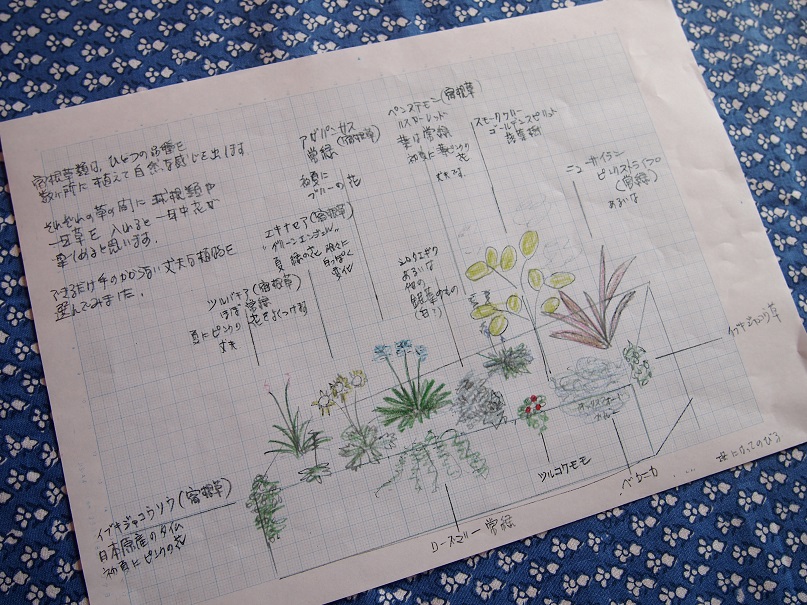 宿根草類は、ひとつの品種を
数ヶ所に植えて自然な感じを出します
それぞれの草の間に球根類や
一年草を入れると一年中花を
楽しめると思います。
できるだけ手のかからない丈夫な植物を
選んでみました。
ツルバキア(宿根草)
ほぼ常緑
夏にピンクの花をよくつける
丈夫
エキナセア(宿根草)
"グリーンエンジェル"
夏 緑の花
変化
アガパンサス
(宿根草)
常緑
初夏に
ブルーの花
ペンステモン(宿根草)
ハスカーレッド
葉は常緑
初夏に薄ピンクの花
丈夫です。
シロタエギク
あるいは
他の
銀葉のもの
(白?)
スモークツリー
ゴールデンスピリット
落葉樹
ニューサイラン
ピンクストライプ
(常緑)
あるいは
イブキジャコウ草
イブキジャコウソウ(宿根草)
日本原産のタイム
初夏にピンクの花
ローズマリー 常緑
ツルコケモモ
ベロニカ
オックスフォード
ブルー